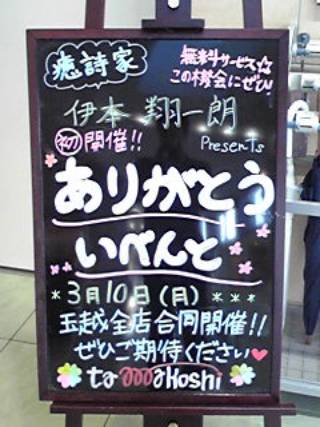 癒詩家
無料サービス☆
この機会にぜひ!
伊本 翔一朗
初 開催!!
Presents
ありがとう
いべんと
*3月10日(月)***
玉越全店合同開催!!
ぜひご期待ください♥
tamakoshi